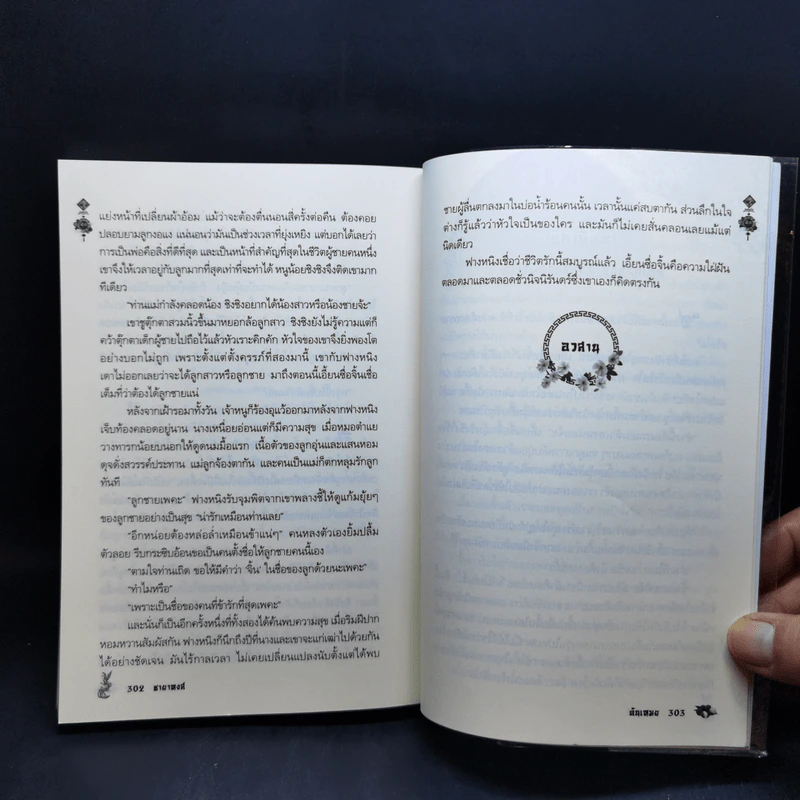 แย่งหน้าที่เปลี่ยนผ้าอ้อม แม้ว่าจะต้องตื่นนอนสี่ครั้งต่อคืน ต้องคอย
ปลอบยามลูกงอแง แน่นอนว่ามันเป็นช่วงเวลาที่ยุ่งเหยิง แต่บอกได้เลยว่า
การเป็นพ่อคือสิ่งที่ดีที่สุด และเป็นหน้าที่สำคัญที่สุดในชีวิตผู้ชายคนหนึ่ง
เขาจึงให้เวลาอยู่กับลูกมากที่สุดเท่าที่จะทำได้ หนูน้อยชิงชิงจึงติดเขามาก
ทีเดียว
“ท่านแม่กำลังคลอดน้อง ชิงชิงอยากได้น้องสาวหรือน้องชายจ้ะ”
เขาชูตุ๊กตาสวมนิ้วขึ้นมาหยอกล้อลูกสาว ชิงชิงยังไม่รู้ความแต่ก็
คว้าตุ๊กตาเด็กผู้ชายไปถือไว้แล้วหัวเราะคิกคัก หัวใจของเขาจึงยิ่งพองโต
อย่างบอกไม่ถูก เพราะตั้งแต่ตั้งครรภ์ที่สองมานี้ เขากับฟางหนิง
เดาไม่ออกเลยว่าจะได้ลูกสาวหรือลูกชาย มาถึงตอนนี้เอี้ยนซื่อจิ้นเชื่อ
เต็มที่ว่าต้องได้ลูกชายแน่
หลังจากเฝ้ารอมาทั้งวัน เจ้าหนูก็ร้องอุแว้ออกมาหลังจากฟางหนิง
เจ็บท้องคลอดอยู่นาน นางเหนื่อยอ่อนแต่ก็มีความสุข เมื่อหมอตำแย
วางทารกน้อยบนอกให้ดูดนมมื้อแรก เนื้อตัวของลูกอุ่นและแสนหอม
ดุจดั่งสวรรค์ประทาน แม่ลูกจ้องตากัน และคนเป็นแม่ก็ตกหลุมรักลูก
ทันที
“ลูกชายเพคะ” ฟางหนิงรับจุมพิตจากเขาพลางชี้ให้ดูแก้มยุ้ยๆ
ของลูกชายอย่างเป็นสุข “น่ารักเหมือนท่านเลย”
“อีกหน่อยต้องหล่อล่ำเหมือนข้าแน่ๆ” คนหลงตัวเองยิ้มปลื้ม
ตัวลอย รีบกระซิบอ้อนขอเป็นคนตั้งชื่อให้ลูกชายคนนี้เอง
“ตามใจท่านเถิด ขอให้มีคำว่า ‘จิ้น’ ในชื่อของลูกด้วยนะเพคะ”
“ทำไมหรือ”
“เพราะเป็นชื่อของคนที่ข้ารักที่สุดเพคะ”
และนั่นก็เป็นอีกครั้งหนึ่งที่ทั้งสองได้ค้นพบความสุข เมื่อริมฝีปาก
หอมหวานสัมผัสกัน ฟางหนิงก็นึกถึงปีที่นางและเขาจะแก่เฒ่าไปด้วยกัน
ได้อย่างชัดเจน มันไร้กาลเวลา ไม่เคยเปลี่ยนแปลงนับตั้งแต่ได้พบ
302 ชายาหงส์
ชายผู้ลื่นตกลงมาในบ่อน้ำร้อนคนนั้น เวลานั้นแค่สบตากัน ส่วนลึกในใจ
ต่างก็รู้แล้วว่าหัวใจเป็นของใคร และมันก็ไม่เคยสั่นคลอนเลยแม้แต่
นิดเดียว
ฟางหนิงเชื่อว่าชีวิตรักนี้สมบูรณ์แล้ว เอี้ยนซื่อจิ้นคือความใฝ่ฝัน
ตลอดมาและตลอดชั่วนิจนิรันดร์ซึ่งเขาเองก็คิดตรงกัน
อวสาน
ต้นเหมย 303